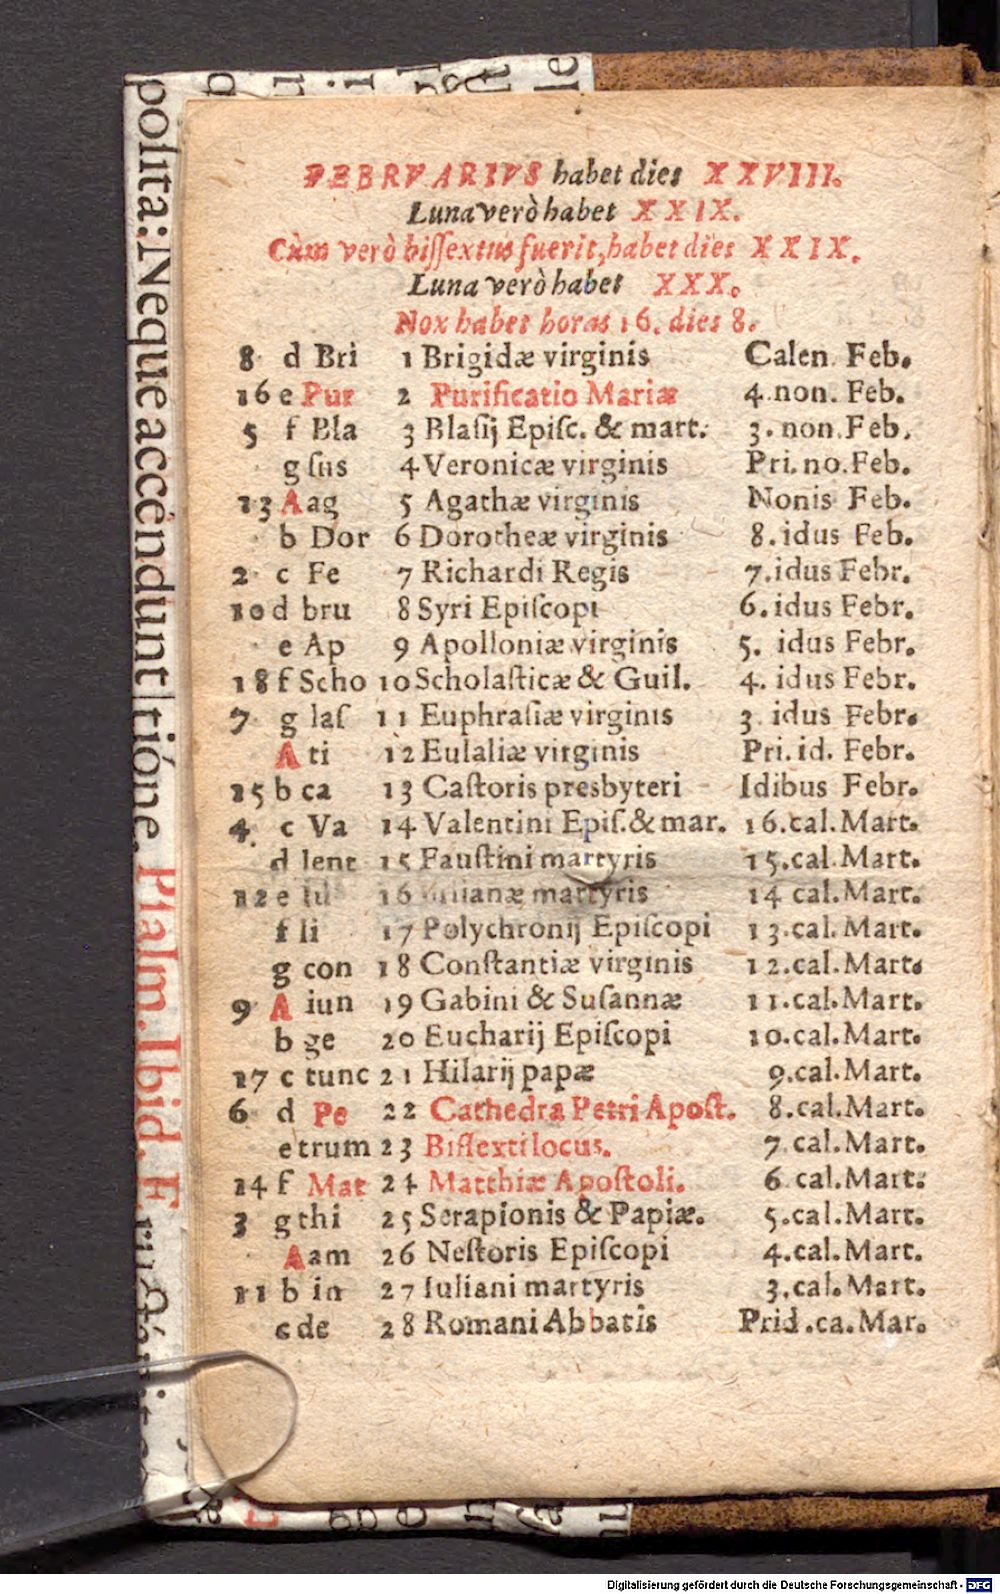 FEBRVARIVS habet dies XXVIII.
Luna verò habet XXIX.
Cùm verò bissextus fuerit, habet dies XXIX.
Luna verò habet XXX.
Nox habet horas 16. dies 8.
8 d Bri 1 Brigidæ virginis Calen. Feb.
16 e Pur 2 Purificatio Mariæ 4 non. Feb.
5 f Bla 3 Blasij Episc. & mart. 3. non. Feb.
g sus 4 Veronicæ virginis Pri. no. Feb.
13 A ag 5 Agathæ virginis Nonis Feb.
b Dor 6 Dorotheæ virginis 8. idus Feb.
2 c Fe 7 Richardi Regis 7. idus Febr.
10 d bru 8 Syri Episcopi 6. idus Febr.
e Ap 9 Apolloniæ virginis 5. idus Febr.
18 f Scho 10 Scholasticæ & Guil. 4. idus Febr.
7 g las 11 Euphrasiæ virginis 3 idus Febr.
A ti 12 Eulaliæ virginis Pri. id. Febr.
15 b ca 13 Castoris presbyteri Idibus Febr.
4 c Va 14 Valentini Epis. & mar. 16. cal. Mart.
d lent 15 Faustini martyris 15. cal. Mart.
12 e Iul 16 Iulianæ martyris 14 cal. Mart.
f li 17 Polychronij Episcopi 13. cal. Mart.
g con 18 Constantiæ virginis 12. cal. Mart.
9 A iun 19 Gabini & Susannæ 11. cal. Mart.
b ge 20 Eucharij Episcopi 10. cal. Mart.
17 c tunc 21 Hilarij papæ 9. cal. Mart.
6 d Pe 22 Cathedra Petri Apost. 8. cal. Mart.
e trum 23 Bissexti locus. 7 cal. Mart.
14 f Mat 24 Matthiæ Apostoli. 6 cal. Mart.
3 g thi 25 Serapionis & Papiæ. 5. cal. Mart.
A am 26 Nestoris Episcopi 4. cal. Mart.
11 b in 27 Iuliani martyris 3. cal. Mart.
c de 28 Romani Abbatis Prid. ca. Mar.
polita: Neque accéndunt
tióne. Psalm. Ibid. E
Digitalisierung gefördert durch die Deutsche Forschungsgemeinschaft - DFG